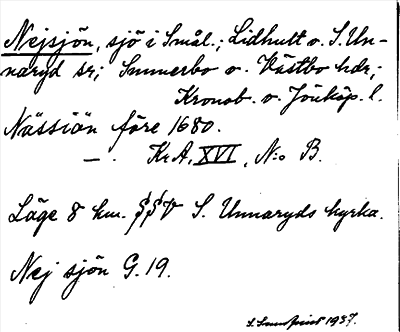 Nejsjön, sjö i Smål.; Lidhult o. S. Un-
naryd sr; Sunnerbo o. Västbo hdr;
Kronob. o. Jönköp. l.
Nässiön före 1680.
— . Kr A, XVI, N:o B.
Läge 8 km. SSV S. Unnaryds kyrka.
Nej sjön G. 19.
1937.